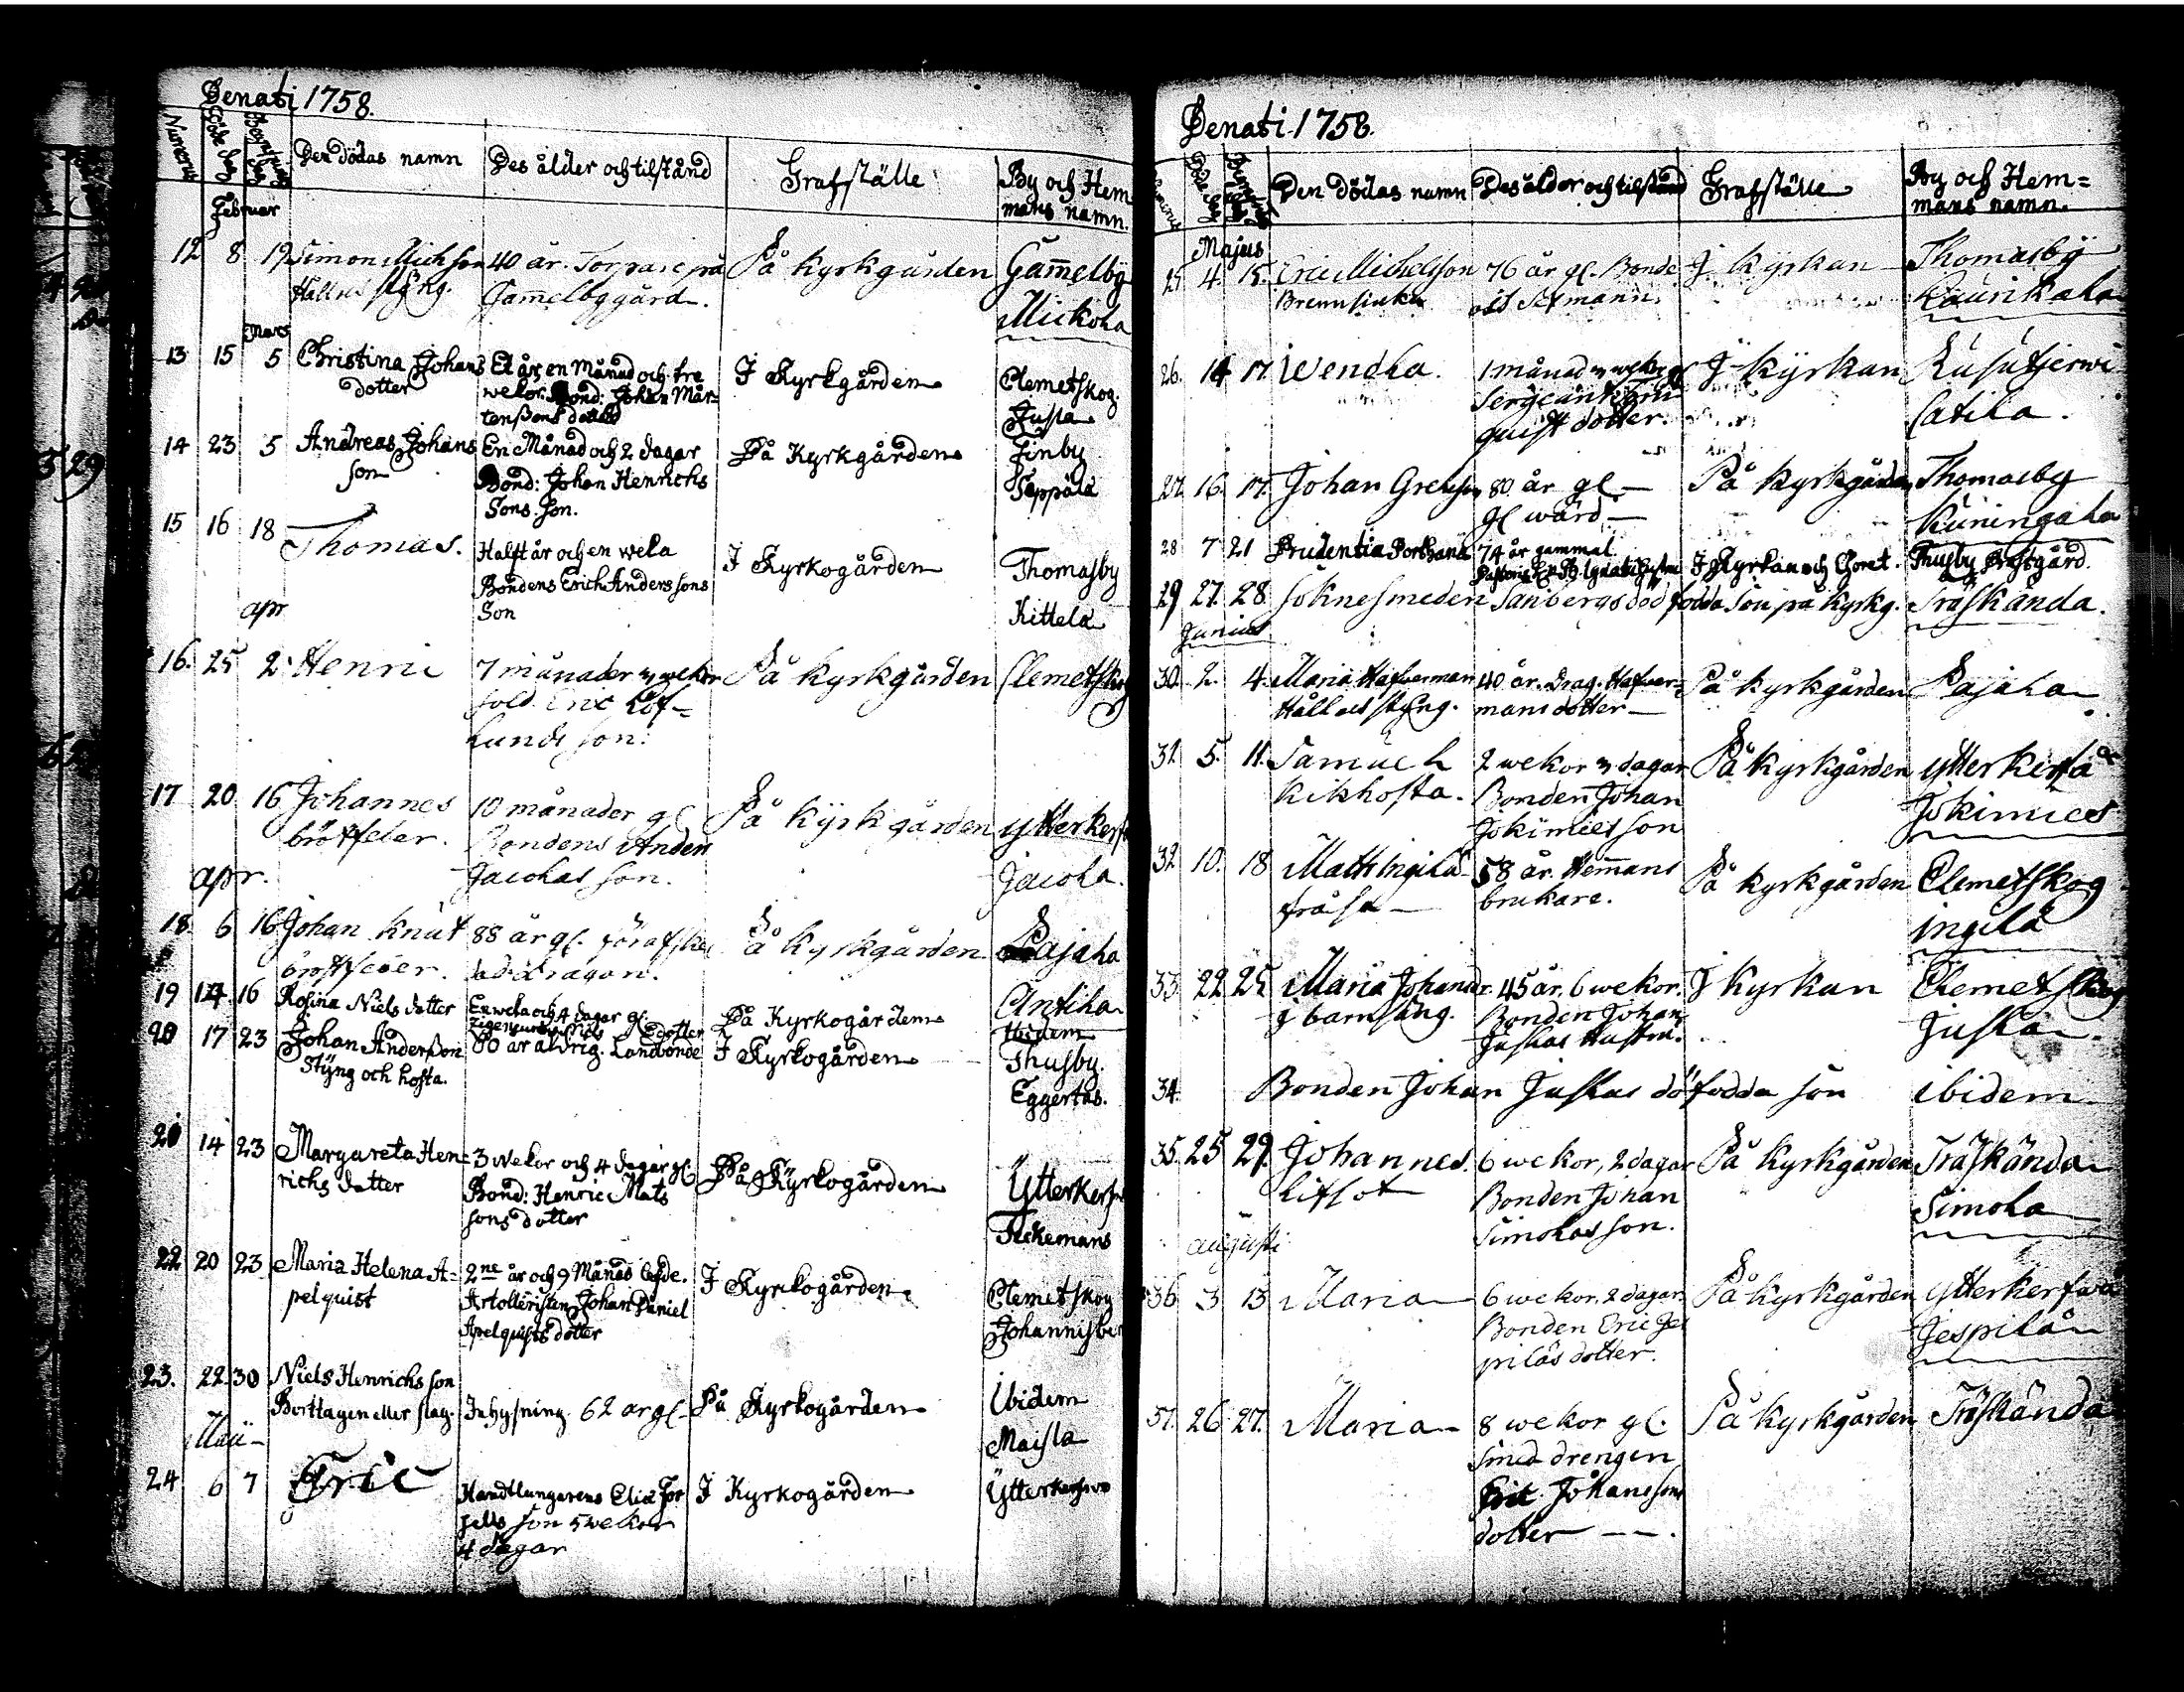 Denati 1758.
Numerus Döde dag Begrafnings dag Den dödas namn Des ålder och tilstånd Grafställe By och Hem
mans namn.
Februar
12 8 19 Simon Michson 40 år. Torpare på På kyrkgården Gam̄elby
Håll och styng. Gam̄elby gård. Mickola
Mars
13 15 5 Christina Johans Et år, en Månad och tre I Kyrkgården Clemetskog
dotter wekor. Bond: Johan Mår= Jusla
tenssons dotter
14 23 5 Andreas Johans En Månad och 2 dagar På Kyrkgården Finby
son Bond: Johan Henrichs Seppälä
Sons Son.
15 16 18 Thomas. Halft år och en weka I Kyrkogården Thomasby
Bondens Erich Anderssons Kittela
Son
apr
16. 25 2. Henric 7 månader 3 wekor På kyrkgården Clemetskog
sold. Eric Löf=
lunds son.
17 20 16 Johannes 10 månader gl På kyrkgården ytterkerf
bröstfeber. Bondens Anders Jacola.
Jacolas son.
apr.
18. 6 16 Johan Knut 88 år gl. för afske På kyrkgården Pajala
bröstfeber. dad dragon.
19 14 16 Rosina Niels dotter En weka och 4 dagar gl. På Kyrkogården Antila
dotter Ibidem
20 17 23 Johan Andersson 80 år aldrig. Landbonde I Kyrkogården Thusby.
Styng och hosta. Eggertas.
21 14 23 Margareta Hen= 3 wekor och 4 dagar gl. På Kyrkogården Ytterkerf
richs dotter Bond: Henric Mats Teckemans
sons dotter
22 20 23 Maria Helena A= 2ne år och 9 Månad I Kyrkogården Clemetskog
pelquist Artolleristen Johan Daniel Johannisber
Apelquists dotter
23. 22 30 Niels Henrichs son Inhysning 62 år gl. På Kyrkogården Ibidem
Borttagen eller slag. Maisla
Maii
24 6 7 Eric Handtlangarens Elias For I Kyrkogården Ytterkerfwo
sells son 5 wekor
4 dagar
Denati 1758.
Numerus Döde dag Begrafnings dag Den dödas namn Des ålder och tilstånd Grafställe By och Hem=
mans namn.
Majus
25 4. 15. Eric Michelsson 76 år gl. Bonde J kyrkan Thomasby
Brennsiuka och Sexmann. Kaurikala
26. 14 17 Wendla. 1 månad 3 wekor J kyrkan Rusutjerwi
Sergeant
quist dotter. Catila.
27. 16. 17. Johan Grelsson 80 år gl— På kyrkgården Thomasby
gl wärd— Kuningala
28 7 21 Prudentia Porthana 74 år gammal I Kyrkan och Choret. Thusby Prestgård.
29 27. 28 Soknesmeden Sanbergs död födda son på kyrkg. Träskända.
Junius
30. 2. 4. Maria Hafverman 40 år. Drag. Hafver= På kyrkgården Pajala
Håll och styng. mans dotter—
31. 5. 11. Samuel 2 wekor 3 dagar På kyrkgården ytterkerfwå
Kikhosta. Bonden Johan Jokimies
Jokimies son
32 10. 18 Matts Ingilä 58 år. Hem̄ans På kyrkgården Clemetskog
fråssa— brukare. ingilä
33. 22 25 Maria Johansdr. 45 år, 6 wekor. J kyrkan Clemetskog
J barnsäng. Bonden Johan Juslas.
Juslas Hustru.
34. Bonden Johan Juslas döfödda son ibidem
35. 25 29. Johannes. 6 wekor, 2 dagar På kyrkgården Träskända
Litsot Bonden Johan Simola
Simolas son.
augusti
36 3 13 Maria 6 wekor, 2 dagar På kyrkgården ytterkerfwå
Bonden Eric Jes Jespilä
piläs dotter.
37. 26 27. Maria 8 wekor gl. På kyrkgården Träskända
Smed drengen
Eric Johanssons
dotter —.